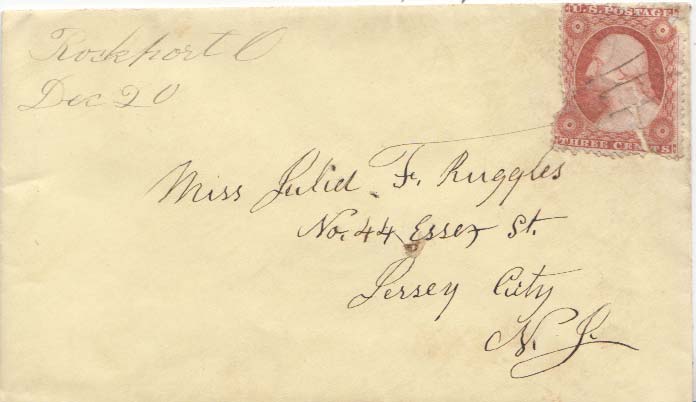 U.S. POSTAGE
THREE CENTS
Rockport O
Dec 20
Miss Julie F. Ruggles
No. 44 Essex St.
Jersey City
N. J.